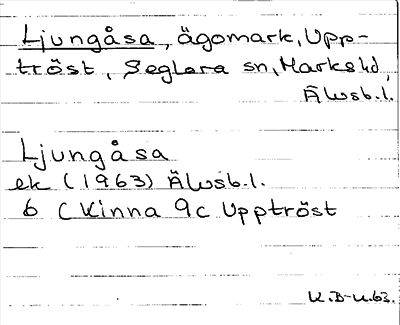 Ljungåsa, ägomark, Upp-
tröst, Seglora sn, Marks hd,
Älvsb.l.
Ljungåsa
ek (1963) Älvsb.l.
6 (Kinna 9c Upptröst
K.B-u.63.